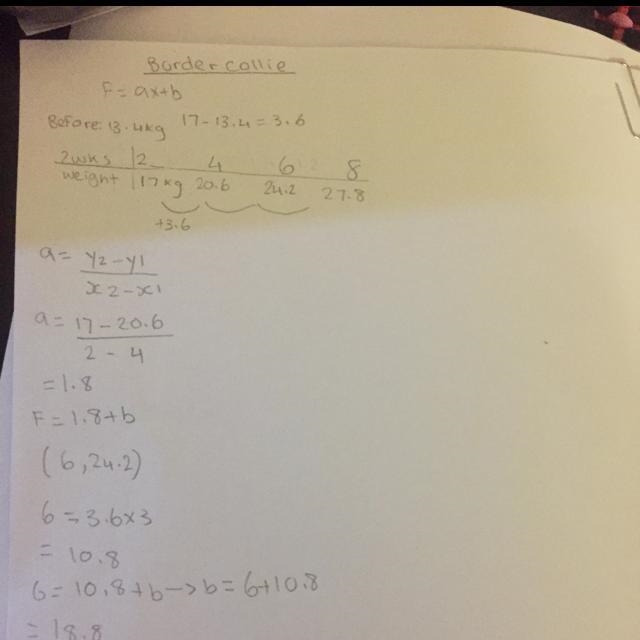 Border collie
F=ax+b
Before: 13.4kg 17-13.4=3.6
2wks 2 4 6 8
weight 17kg 20.6 24.2 27.8
+3.6
a= y2-y1
x2-x1
a= 17-20.6
2-4
=1.8
F=1.8+b
(6,24.2)
6=3.6x3
=10.8
6=10.8+b→b=6+10.8
=18.8